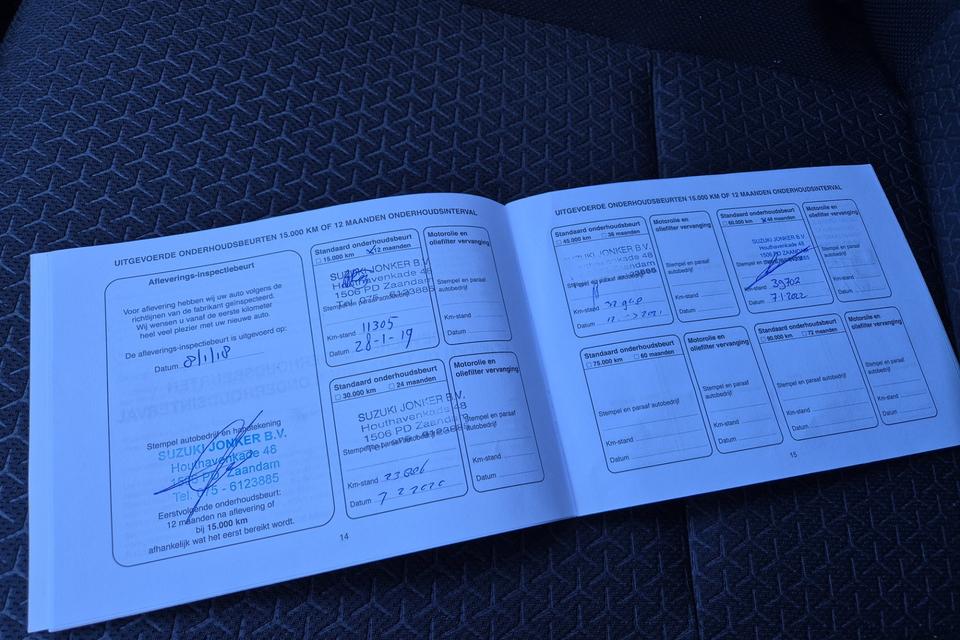 UITGEVOERDE ONDERHOUDSBEURTEN 15.000 KM OF 12 MAANDEN ONDERHOUDSINTERVAL
Afleverings-inspectiebeurt
Voor aflevering hebben wij uw auto volgens de
richtlijnen van de fabrikant geïnspecteerd.
Wij wensen u vanaf de eerste kilometer
heel veel plezier met uw nieuwe auto.
De afleverings-inspectiebeurt is uitgevoerd op:
Datum 8/1/18
Stempel autobedrijf en handtekening
SUZUKI JONKER B.V.
Houthavenkade 48
1506 PD Zaandam
Tel. 075 - 6123885
Eerstvolgende onderhoudsbeurt:
12 maanden na aflevering of
bij 15.000 km
afhankelijk wat het eerst bereikt wordt.
Standaard onderhoudsbeurt
15.000 km 12 maanden
SUZUKI JONKER B.V.
Houthavenkade 48
1506 PD Zaandam
Tel. 075 - 6123885
Stempel en paraaf autobedrijf
Km-stand 11305
Datum 28-1-19
Motorolie en
oliefilter vervanging
Stempel en paraaf
autobedrijf
Km-stand
Datum
Standaard onderhoudsbeurt
30.000 km 24 maanden
SUZUKI JONKER B.V.
Houthavenkade 48
1506 PD Zaandam
Stempel en paraaf autobedrijf
Km-stand
Datum 7 2 2020
Motorolie en
oliefilter vervanging
Stempel en paraaf
autobedrijf
Km-stand
Datum
14
UITGEVOERDE ONDERHOUDSBEURTEN 15.000 KM OF 12 MAANDEN ONDERHOUDSINTERVAL
Standaard onderhoudsbeurt
45.000 km 36 maanden
SUZUKI JONKER B.V.
Stempel en paraaf autobedrijf
Km-stand
Datum
Motorolie en
oliefilter vervanging
Stempel en paraaf
autobedrijf
Km-stand
Datum
Standaard onderhoudsbeurt
60.000 km 48 maanden
SUZUKI JONKER B.V.
Houthavenkade 48
1506 PD ZAANDAM
Stempel en paraaf autobedrijf
Km-stand 39702
Datum 7 1 2022
Motorolie en
oliefilter vervanging
Stempel en paraaf
autobedrijf
Km-stand
Datum
Standaard onderhoudsbeurt
75.000 km 60 maanden
Stempel en paraaf autobedrijf
Km-stand
Datum
Motorolie en
oliefilter vervanging
Stempel en paraaf
autobedrijf
Km-stand
Datum
Standaard onderhoudsbeurt
90.000 km 72 maanden
Stempel en paraaf autobedrijf
Km-stand
Datum
Motorolie en
oliefilter vervanging
Stempel en paraaf
autobedrijf
Km-stand
Datum
15